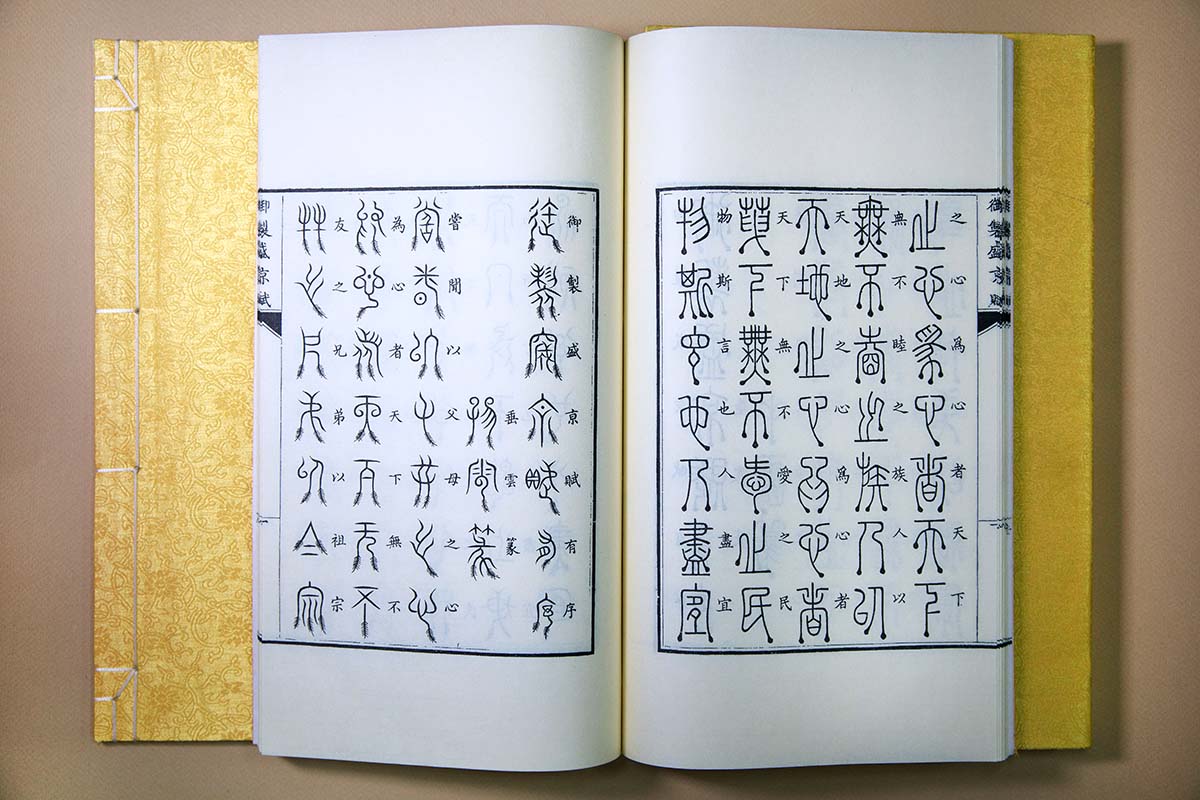 御製盛京賦
之心爲心者天下
無不睦之族人以
天地之心爲心者
天下無不愛之民
物斯言也人盡宜
御製盛京賦有序
垂雲篆
嘗聞以父母之心
為心者天下無不
友之兄弟以祖宗
御製盛京賦